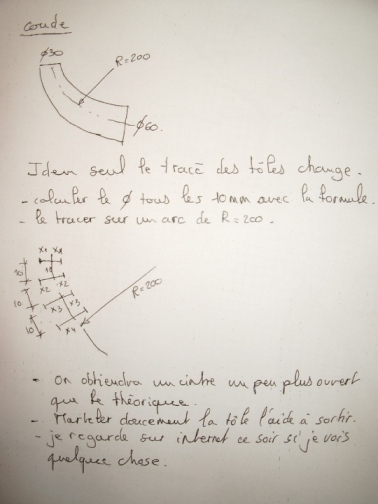 coude
ϕ30
R=200
ϕ60.
Idem seul le tracé des tôles change.
- calculer le ϕ tous les 10mm avec la formule.
- le tracer sur un arc de R=200.
x1 x1
10
10
x2 x2
10
x3 x3
10
x4
R=200
- On obtiendra un cintre un peu plus ouvert
que le théorique.
- Marteler doucement la tôle l'aide à sortir.
- je regarde sur internet ce soir si je vois
quelque chose.